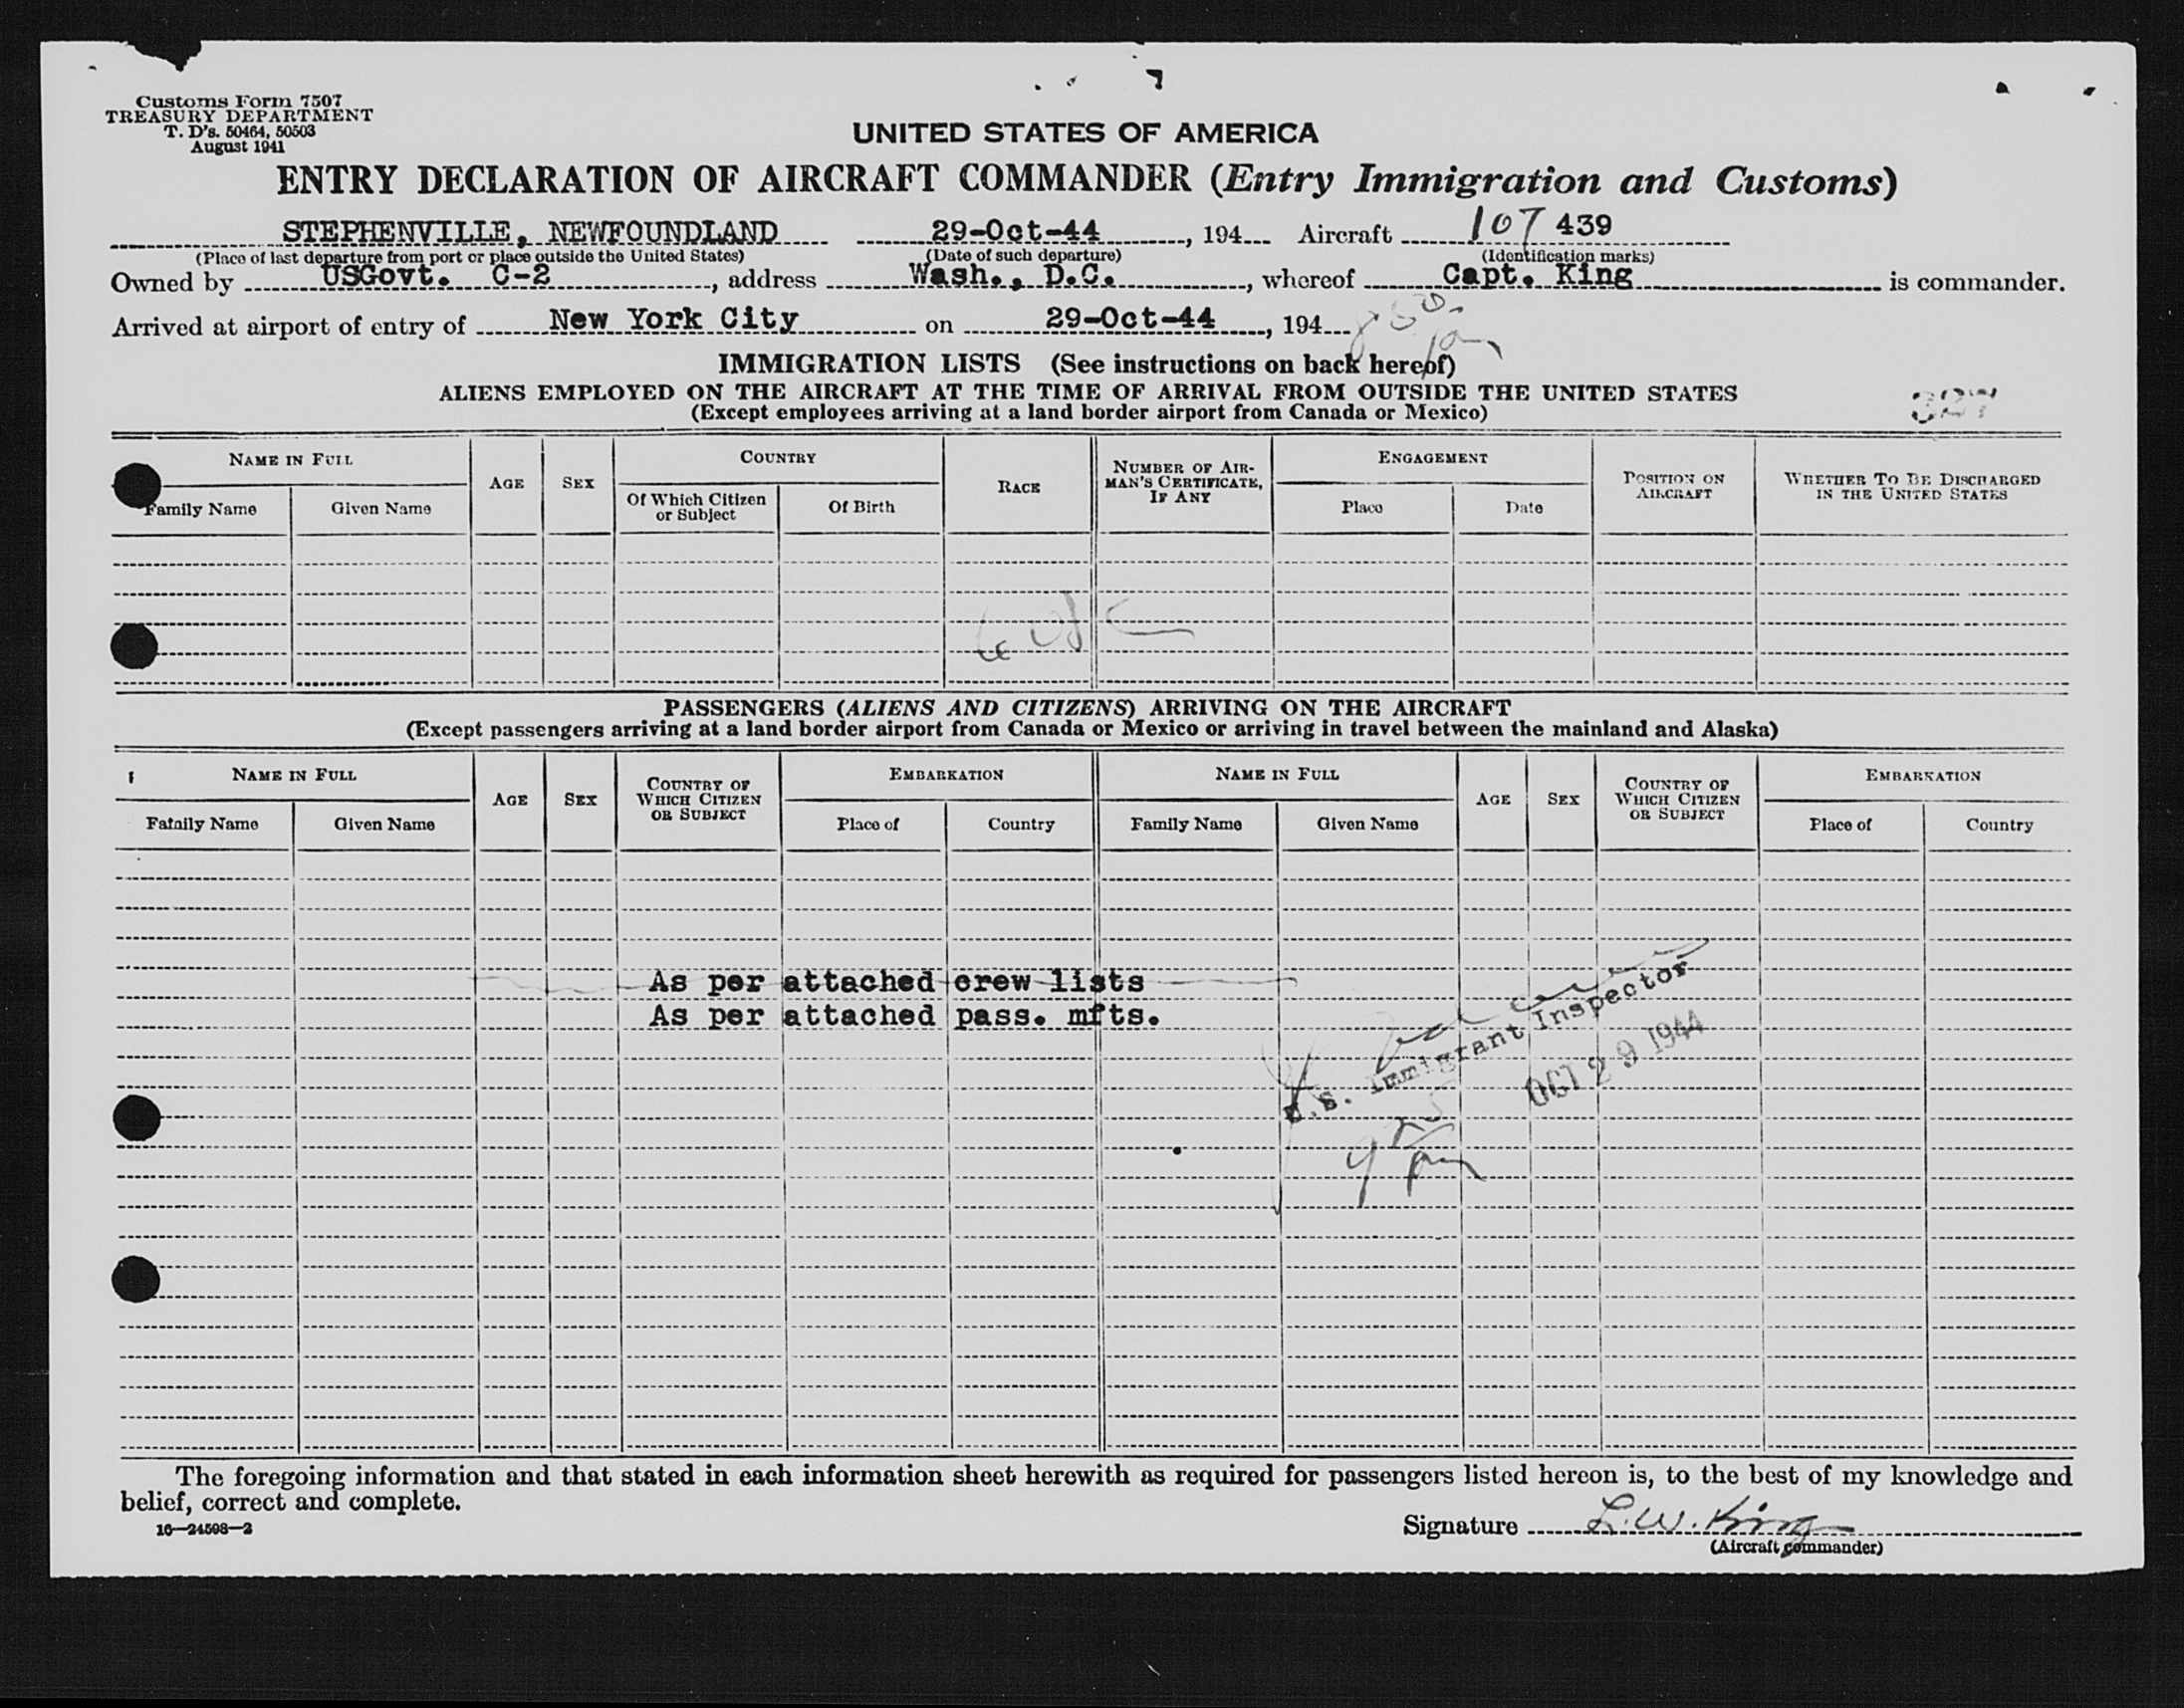 Customs Form 7507
TREASURY DEPARTMENT
T. D's. 50464, 50503
August 1941
UNITED STATES OF AMERICA
ENTRY DECLARATION OF AIRCRAFT COMMANDER (Entry Immigration and Customs)
STEPHENVILLE, NEWFOUNDLAND 29-Oct-44, 194 Aircraft 107 439
(Place of last departure from port or place outside the United States) (Date of such departure) (Identification marks)
Owned by USGovt. C-2, address Wash., D.C., whereof Capt. King is commander.
Arrived at airport of entry of New York City on 29-Oct-44, 194
IMMIGRATION LISTS (See instructions on back hereof)
ALIENS EMPLOYED ON THE AIRCRAFT AT THE TIME OF ARRIVAL FROM OUTSIDE THE UNITED STATES
(Except employees arriving at a land border airport from Canada or Mexico)
327
NAME IN FULL AGE SEX COUNTRY RACE NUMBER OF AIRMAN'S CERTIFICATE, IF ANY ENGAGEMENT POSITION ON AIRCRAFT WHETHER TO BE DISCHARGED IN THE UNITED STATES
Family Name Given Name Of Which Citizen or Subject Of Birth Place Date
PASSENGERS (ALIENS AND CITIZENS) ARRIVING ON THE AIRCRAFT
(Except passengers arriving at a land border airport from Canada or Mexico or arriving in travel between the mainland and Alaska)
NAME IN FULL AGE SEX COUNTRY OF WHICH CITIZEN OR SUBJECT EMBARKATION NAME IN FULL AGE SEX COUNTRY OF WHICH CITIZEN OR SUBJECT EMBARKATION
Family Name Given Name Place of Country Family Name Given Name Place of Country
As per attached crew lists
As per attached pass. mfts.
U.S. Immigrant Inspector
OCT 29 1944
The foregoing information and that stated in each information sheet herewith as required for passengers listed hereon is, to the best of my knowledge and
belief, correct and complete.
16—24598—2
Signature L. W. King
(Aircraft commander)